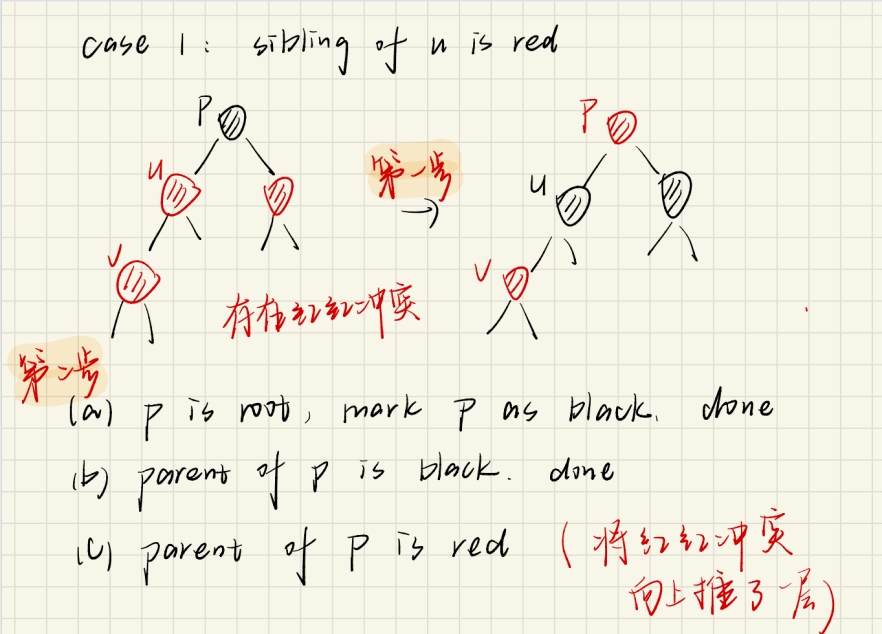 case 1: sibling of u is red
P
P
u
第一步
u
→
v
v
存在红红冲突
第二步
(a) p is root, mark P as black. done
(b) parent of p is black. done
(c) parent of P is red (将红红冲突
向上推了一层)